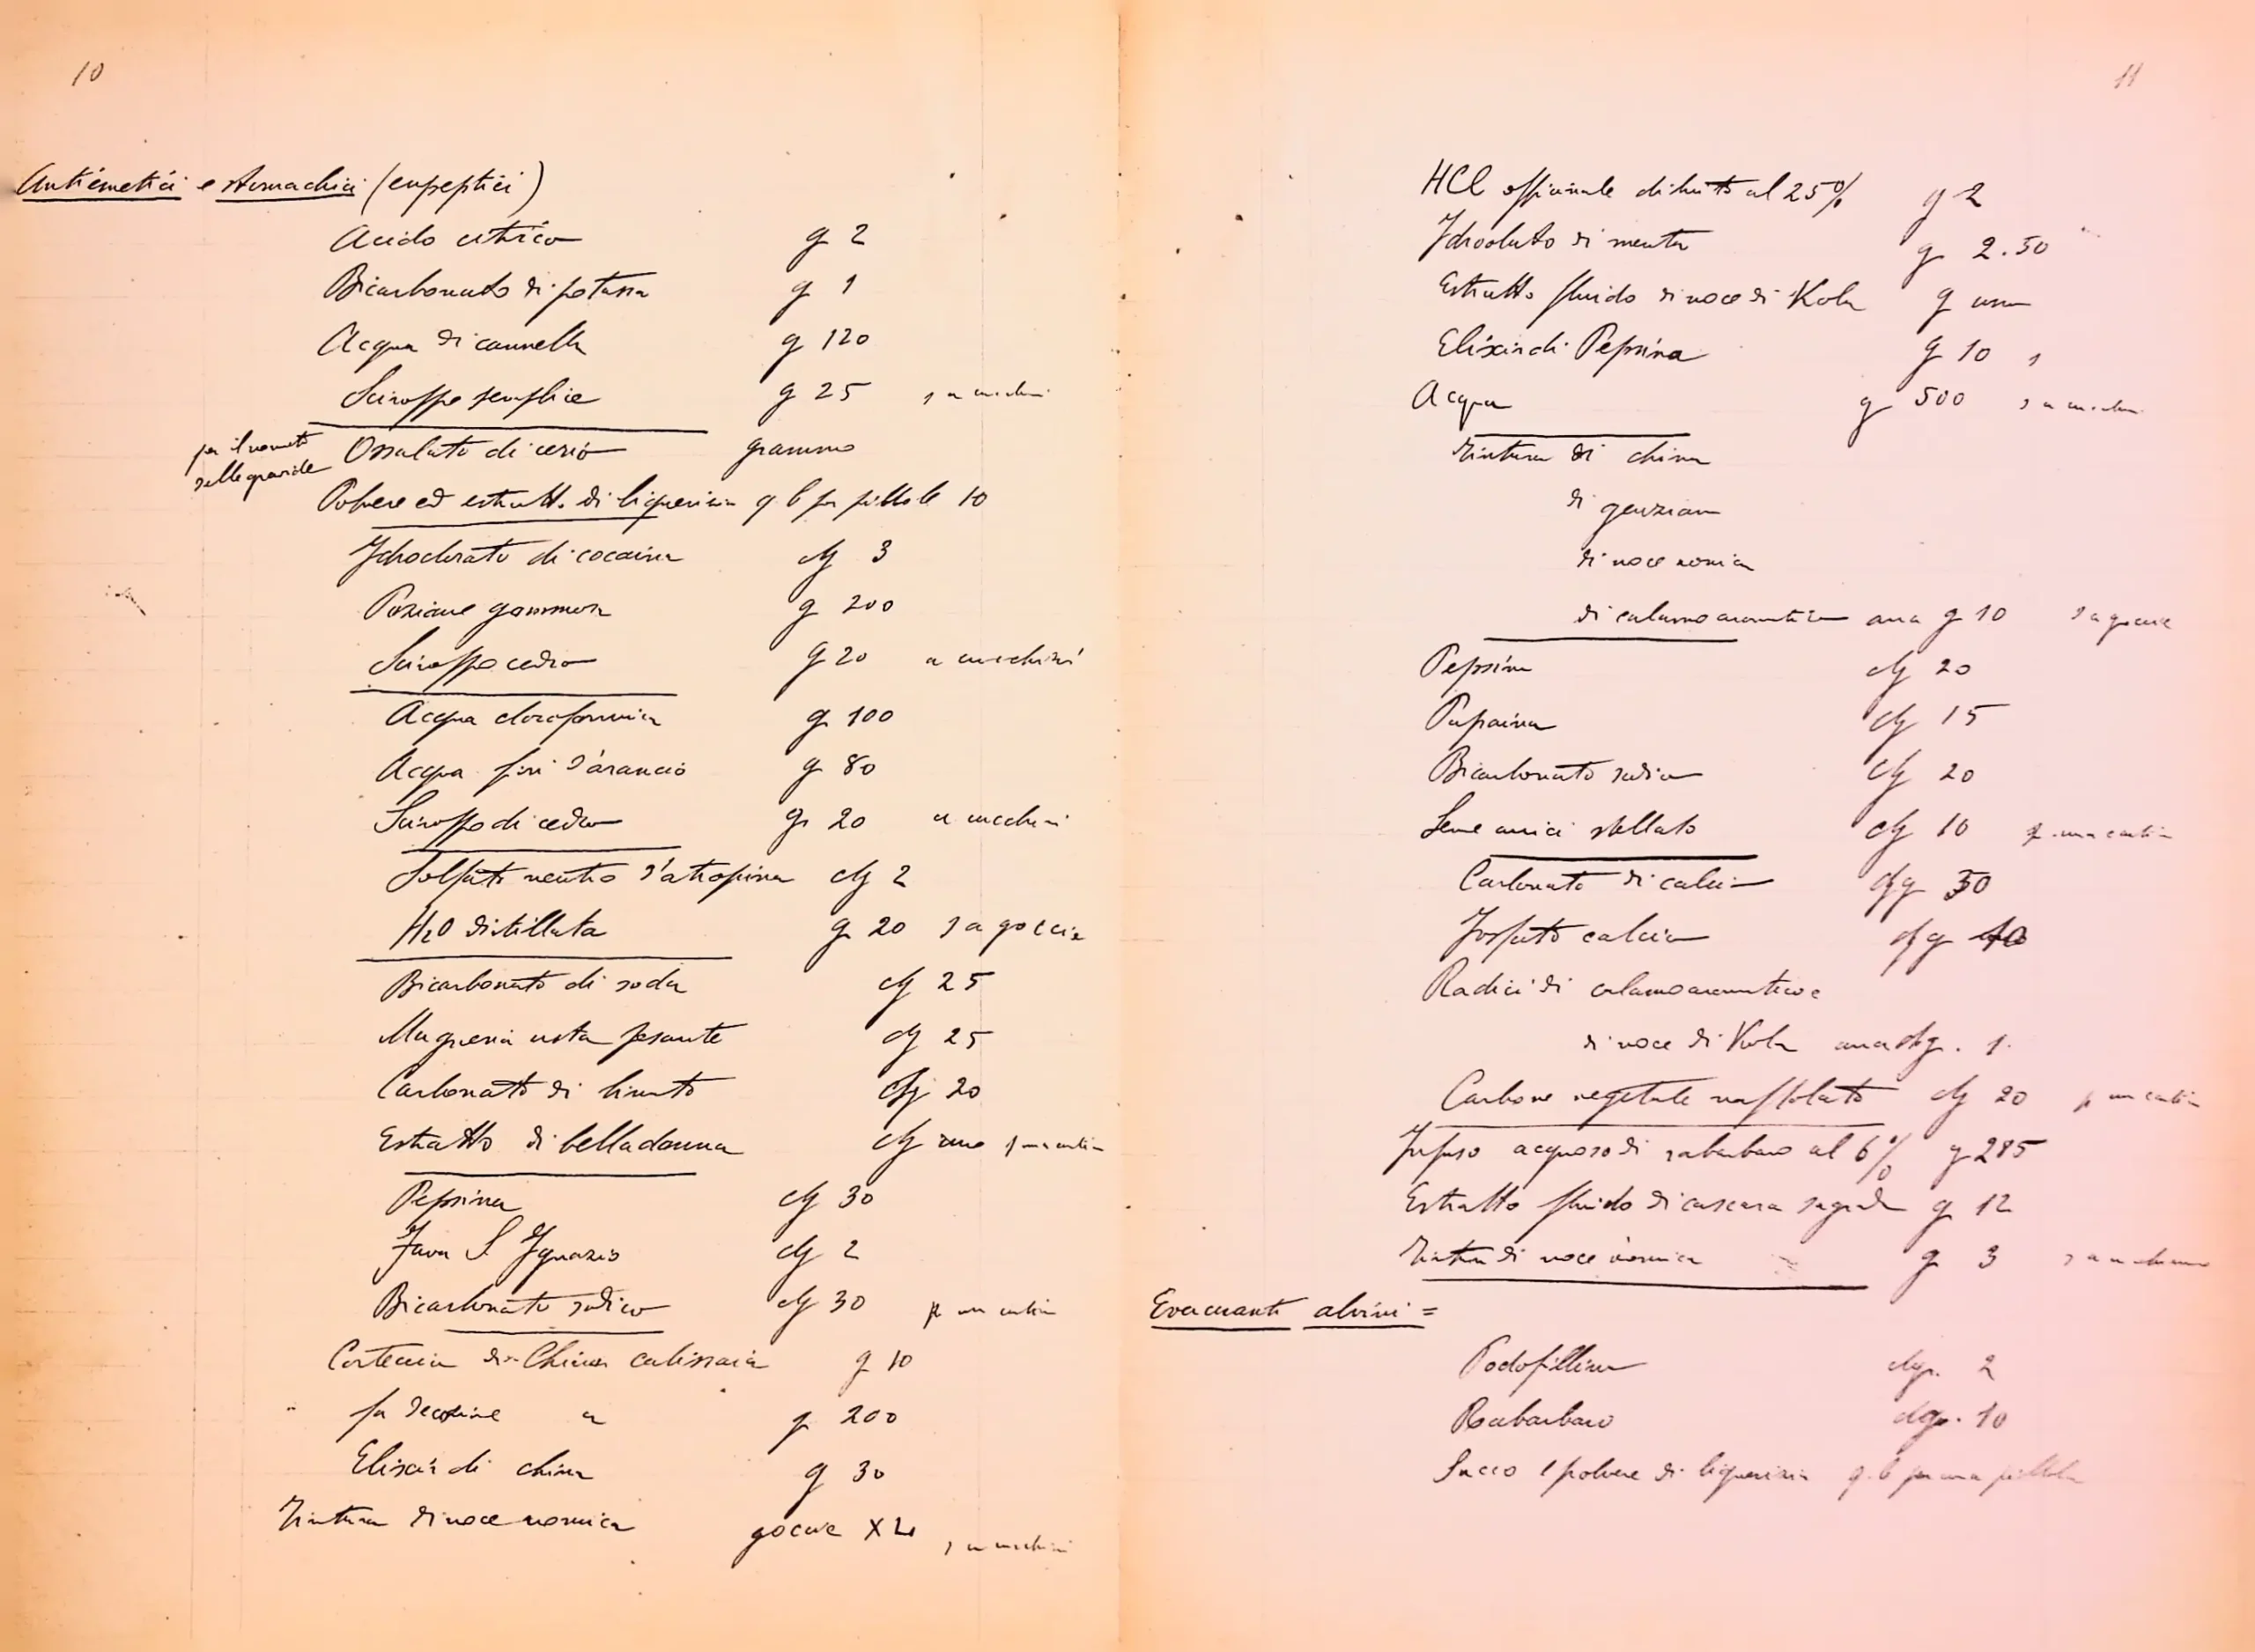 10
Antiemetici e stomachici (eupeptici)
Acido citrico g 2
Bicarbonato di potassa g 1
Acqua di cannella g 120
Sciroppo semplice g 25 s a cucchini
per il vomito
delle gravide
Ossalato di cerio grammo
Polvere ed estratt. di liquerizia q b per pillole 10
Idroclorato di cocaina cg 3
Pozione gommosa g 200
Sciroppo cedro g 20 a cucchini
Acqua cloroformica g 100
Acqua fiori d'arancio g 80
Sciroppo di cedro g 20 a cucchini
Solfato neutro d'atropina cg 2
H2O distillata g 20 s a goccie
Bicarbonato di soda cg 25
Magnesia usta pesante cg 25
Carbonato di bismuto cg 20
Estratto di belladonna cg uno p una cartina
Pepsina cg 30
Fava S. Ignazio cg 2
Bicarbonato sodico cg 30 p una cartina
Corteccia di China calissaia g 10
fa decozione a g 200
Elixir di china g 30
Tintura di noce vomica goccie XL s a cucchini
11
HCl officinale diluito al 25% g 2
Idroolato di menta g 2.50
Estratto fluido di noce di Kola g uno
Elixir di Pepsina g 10
Acqua g 500 s a cucchini
Tintura di china
di genziana
di noce vomica
di calamo aromatico ana g 10 s a goccie
Pepsina cg 20
Papaina cg 15
Bicarbonato sodico cg 20
Seme anici stellato cg 10 p. una cartina
Carbonato di calcio 30
Fosfato calcico
Radici di calamo aromatico e
di noce di Kola ana 1.
Carbone vegetale cg 20 p una cartina
Infuso acquoso di rabarbaro al 6% g 285
Estratto fluido di cascara sagrada g 12
Tintura di noce vomica g 3
Evacuanti alvini =
Podofillina 2
Rabarbaro 10
Succo e polvere di liquerizia q. b per una pillola